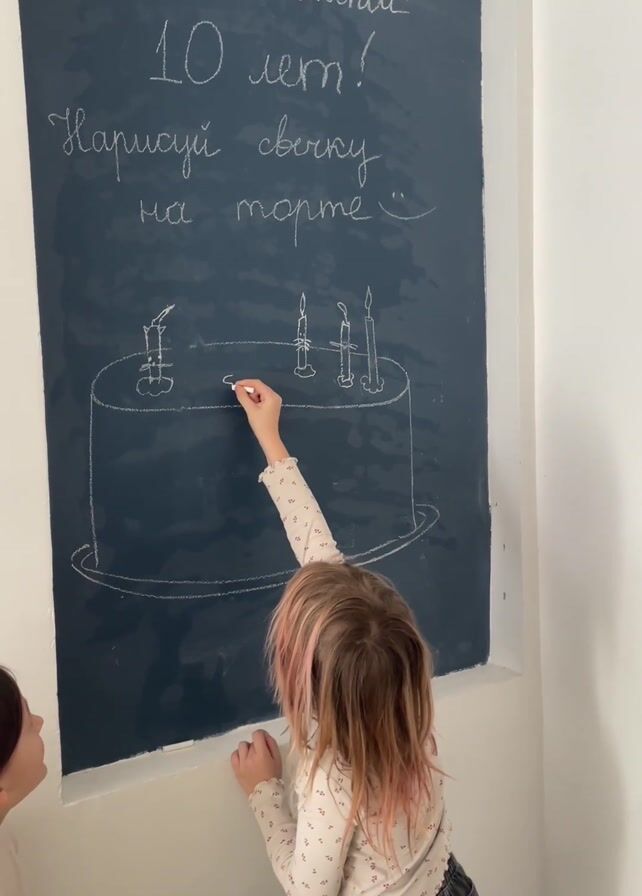 10 лет!
Нарисуй свечку
на торте